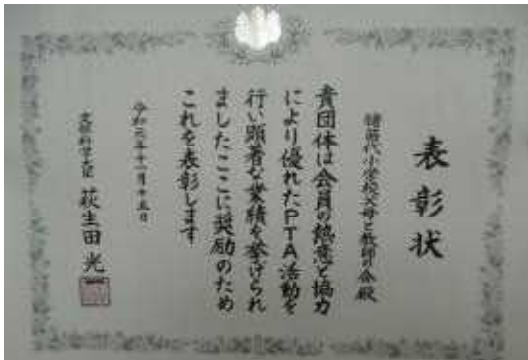 表彰状
猪苗代小学校父母と教師の会殿
貴団体は会員の熱意と協力
により優れたPTA活動を
行い顕著な業績を挙げられ
ましたここに奨励のため
これを表彰します
令和元年十一月十五日
文部科学大臣 萩生田光一